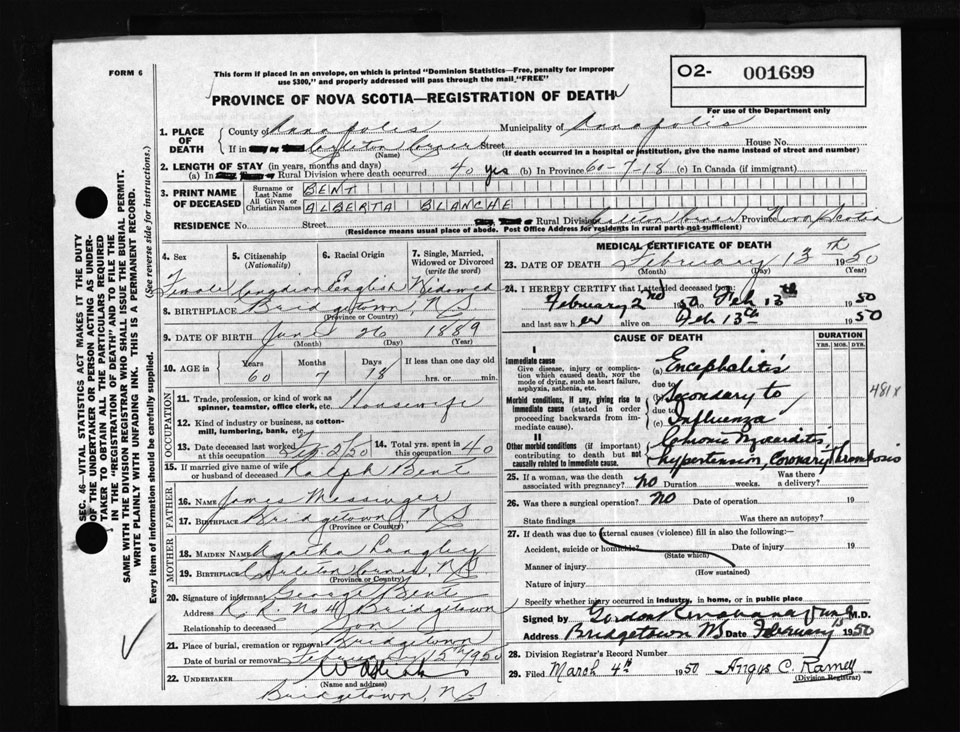 FORM 6
This form if placed in an envelope, on which is printed "Dominion Statistics—Free, penalty for improper
use $300," and properly addressed will pass through the mail "FREE"
O2- 001699
For use of the Department only
PROVINCE OF NOVA SCOTIA—REGISTRATION OF DEATH
1. PLACE OF DEATH
County of Annapolis Municipality of Annapolis
If in Carleton Corner Street House No.
(Name) (If death occurred in a hospital or institution, give the name instead of street and number)
2. LENGTH OF STAY (in years, months and days)
(a) In Rural Division where death occurred 40 yrs (b) In Province 60-7-18 (c) In Canada (if immigrant)
3. PRINT NAME OF DECEASED
Surname or Last Name BENT
All Given or Christian Names ALBERTA BLANCHE
RESIDENCE No. Street Rural Division Carleton Corner Province Nova Scotia
(Residence means usual place of abode. Post Office Address for residents in rural parts not sufficient)
4. Sex
Female
5. Citizenship (Nationality)
Canadian
6. Racial Origin
English
7. Single, Married, Widowed or Divorced (write the word)
Widowed
8. BIRTHPLACE Bridgetown, NS
(Province or Country)
9. DATE OF BIRTH June 26 1889
(Month) (Day) (Year)
10. AGE in Years Months Days If less than one day old
60 7 18 hrs. or min.
OCCUPATION
11. Trade, profession, or kind of work as spinner, teamster, office clerk, etc. Housewife
12. Kind of industry or business, as cotton-mill, lumbering, bank, etc.
13. Date deceased last worked at this occupation Feb 2/50
14. Total yrs. spent in this occupation 40
15. If married give name of wife or husband of deceased Ralph Bent
FATHER
16. NAME James Messinger
17. BIRTHPLACE Bridgetown, NS
(Province or Country)
MOTHER
18. MAIDEN NAME Agatha Langley
19. BIRTHPLACE Carleton Corner, NS
(Province or Country)
20. Signature of informant George Bent
Address R. R. No 4 Bridgetown
Relationship to deceased Son
21. Place of burial, cremation or removal Bridgetown
Date of burial or removal February 15th 1950
22. UNDERTAKER
(Name and address)
Bridgetown, NS
MEDICAL CERTIFICATE OF DEATH
23. DATE OF DEATH February 13th 1950
(Month) (Day) (Year)
24. I HEREBY CERTIFY that I attended deceased from:
February 2nd 1950 to Feb 13th 1950
and last saw her alive on Feb 13th 1950
CAUSE OF DEATH
DURATION
YRS. MOS. DYS.
I
Immediate cause
Give disease, injury or complication which caused death, NOT the mode of dying, such as heart failure, asphyxia, asthenia, etc.
(a) Encephalitis
due to
Morbid conditions, if any, giving rise to immediate cause (stated in order proceeding backwards from immediate cause).
(b) Secondary to
due to
(c) Influenza
481x
II
Other morbid conditions (if important) contributing to death but not causally related to immediate cause.
Chronic Myocarditis,
hypertension, Coronary Thrombosis
25. If a woman, was the death associated with pregnancy? No Duration weeks. Was there a delivery?
26. Was there a surgical operation? No Date of operation 19
State findings Was there an autopsy?
27. If death was due to external causes (violence) fill in also the following:—
Accident, suicide or homicide? Date of injury 19
(State which)
Manner of injury
(How sustained)
Nature of injury
Specify whether injury occurred in industry, in home, or in public place
Signed by Gordon M.D.
Address Bridgetown NS Date February 1950
28. Division Registrar's Record Number
29. Filed March 4th 1950 Angus C. Ramey
(Division Registrar)
SEC. 46—VITAL STATISTICS ACT MAKES IT THE DUTY
OF THE UNDERTAKER OR PERSON ACTING AS UNDER-
TAKER TO OBTAIN ALL THE PARTICULARS REQUIRED
IN THE "REGISTRATION OF DEATH" AND TO FILE THE
SAME WITH THE DIVISION REGISTRAR WHO SHALL ISSUE THE BURIAL PERMIT.
WRITE PLAINLY WITH UNFADING INK. THIS IS A PERMANENT RECORD.
Every item of information should be carefully supplied. (See reverse side for instructions.)